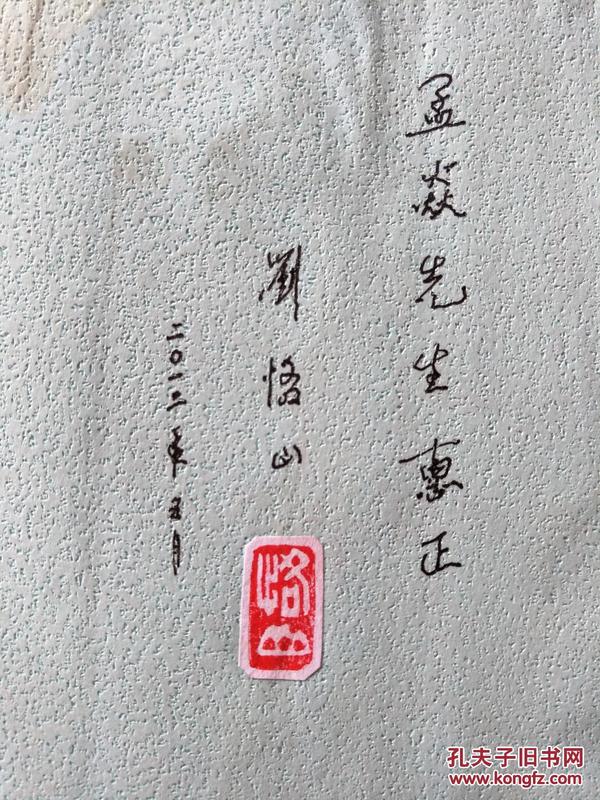 孟焱先生惠正
劉恪山
二〇一二年五月
恪山
孔夫子旧书网
www.kongfz.com